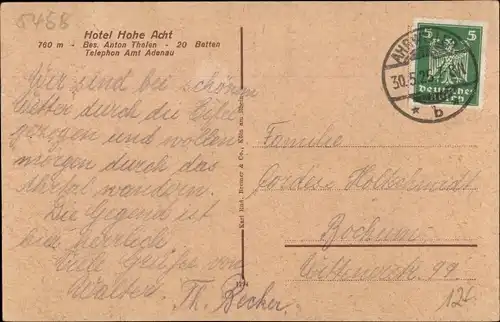 5458
Hotel Hohe Acht
760 m - Bes. Anton Thelen - 20 Betten
Telephon Amt Adenau
Wir sind bei schönem
Wetter durch die Eifel
gezogen und wollen
morgen durch das
Ahrtal wandern.
Die Gegend ist
hier herrlich
Viele Grüße von
Walter. Th. Becher.
Karl Rud. Bremer & Co., Köln am Rhein
5 5
Deutsches
30.5.25
* b
Familie
Cordes Holtschmidt
Bochum
Wittenerstr. 99.
12.-